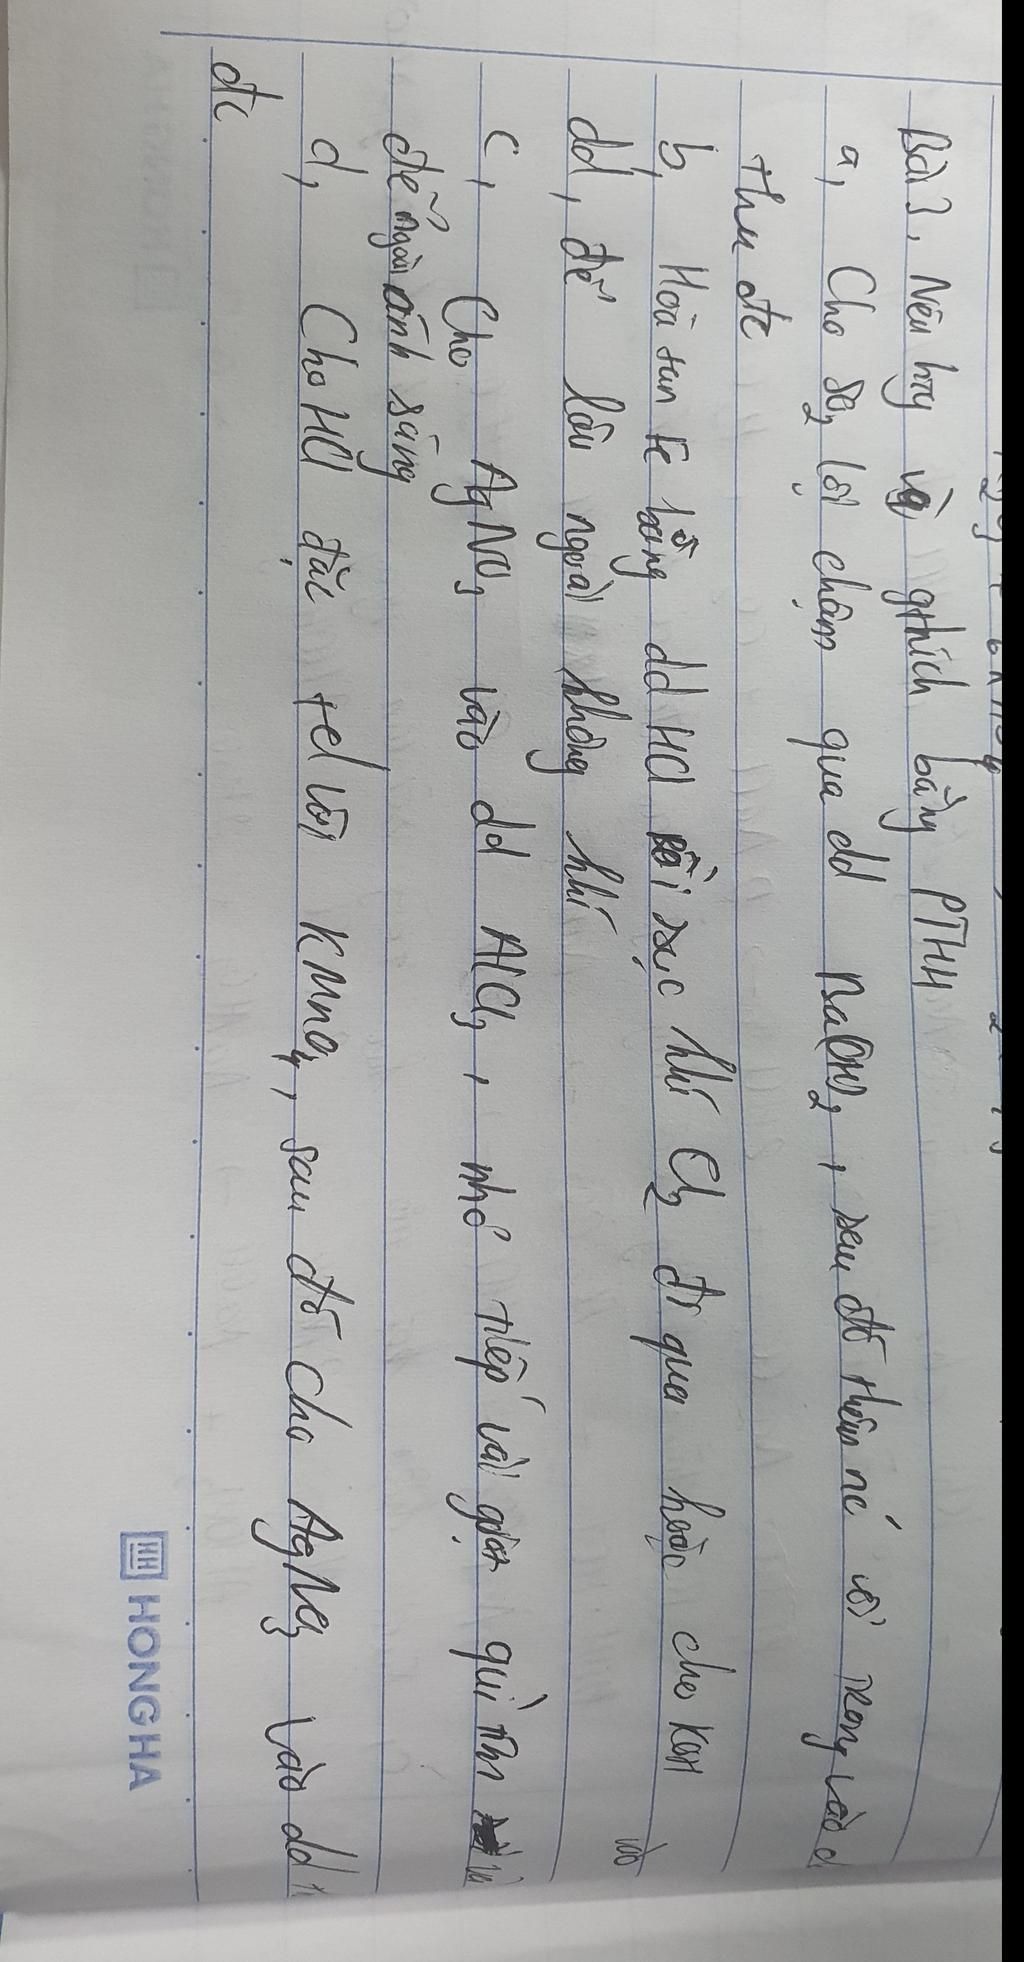 Bài 3. Nêu htg và gthích bằng PTHH
a, Cho SO2 lội chậm qua dd Ba(OH)2, sau đó thêm nc' vôi trong vào d
thu đc
b, Hoà tan Fe bằng dd HCl rồi sục khí Cl2 đi qua hoặc cho KOH vào
dd, để lâu ngoài không khí
c, Cho AgNO3 vào dd AlCl3, nhỏ tiếp vài giọt quì tím và
để ngoài ánh sáng
d, Cho HCl đặc td với KMnO4, sau đó cho AgNO3 vào dd
đc
HH HONG HA